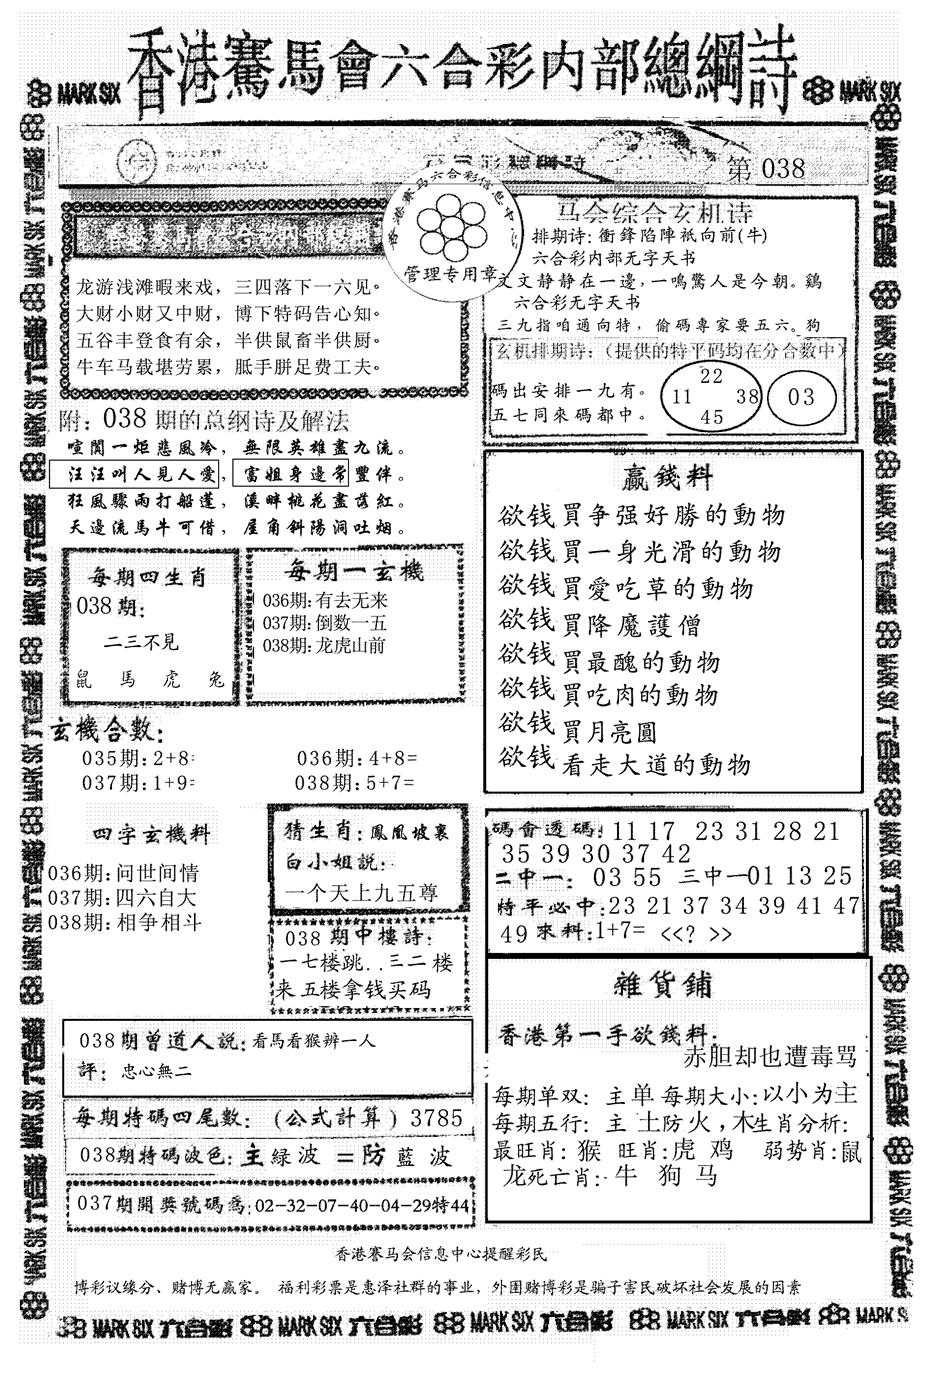 香港賽馬會六合彩内部總綱詩
MARK SIX
MARK SIX
第 038
香港赛马六合彩信息中心
管理专用章
龙游浅滩暇来戏，三四落下一六见。
大财小财又中财，博下特码告心知。
五谷丰登食有余，半供鼠畜半供厨。
牛车马载堪劳累，胝手胼足费工夫。
马会综合玄机诗
排期诗: 衝鋒陷陣祇向前(牛)
六合彩内部无字天书
文文静静在一邊,一鳴驚人是今朝。鷄
六合彩无字天书
三九指咱通向特，偷碼專家要五六。狗
玄机排期诗：（提供的特平码均在分合数中）
碼出安排一九有。
五七同來碼都中。
22
11 38
45
03
附: 038 期的总纲诗及解法
喧闐一炬悲風冷，無限英雄盡九流。
汪汪叫人見人愛，富姐身邊常豐伴。
狂風驟雨打船蓬，溪畔桃花盡落紅。
天邊流馬牛可借，屋角斜陽洞吐烟。
每期四生肖
038 期:
二三不見
鼠 馬 虎 兔
每期一玄機
036期: 有去无来
037期: 倒数一五
038期: 龙虎山前
赢錢料
欲钱買争强好勝的動物
欲钱買一身光滑的動物
欲钱買愛吃草的動物
欲钱買降魔護僧
欲钱買最醜的動物
欲钱買吃肉的動物
欲钱買月亮圓
欲钱看走大道的動物
玄機合數:
035期: 2+8=
036期: 4+8=
037期: 1+9=
038期: 5+7=
四字玄機料
036期: 问世间情
037期: 四六自大
038期: 相争相斗
猜生肖: 鳳凰坡裏
白小姐説:
一个天上九五尊
038 期中樓詩:
一七楼跳..三二楼
来五楼拿钱买码
碼會透碼: 11 17 23 31 28 21
35 39 30 37 42
二中一: 03 55 三中一01 13 25
特平必中:23 21 37 34 39 41 47
49 來料:1+7= <<? >>
038期曾道人説: 看馬看猴辨一人
評: 忠心無二
每期特碼四尾數: (公式計算) 3785
038期特碼波色: 主緑波 =防藍波
037期開獎號碼爲:02-32-07-40-04-29特44
雜貨鋪
香港第一手欲錢料:
赤胆却也遭毒骂
每期单双: 主单 每期大小:以小为主
每期五行: 主 土防火,木生肖分析:
最旺肖: 猴 旺肖:虎 鸡 弱势肖:鼠
龙死亡肖: 牛 狗 马
香港赛马会信息中心提醒彩民
博彩议缘分、赌博无赢家。 福利彩票是惠泽社群的事业，外围赌博彩是骗子害民破坏社会发展的因素
MARK SIX 六合彩 MARK SIX 六合彩 MARK SIX 六合彩 MARK SIX 六合彩 MARK SIX